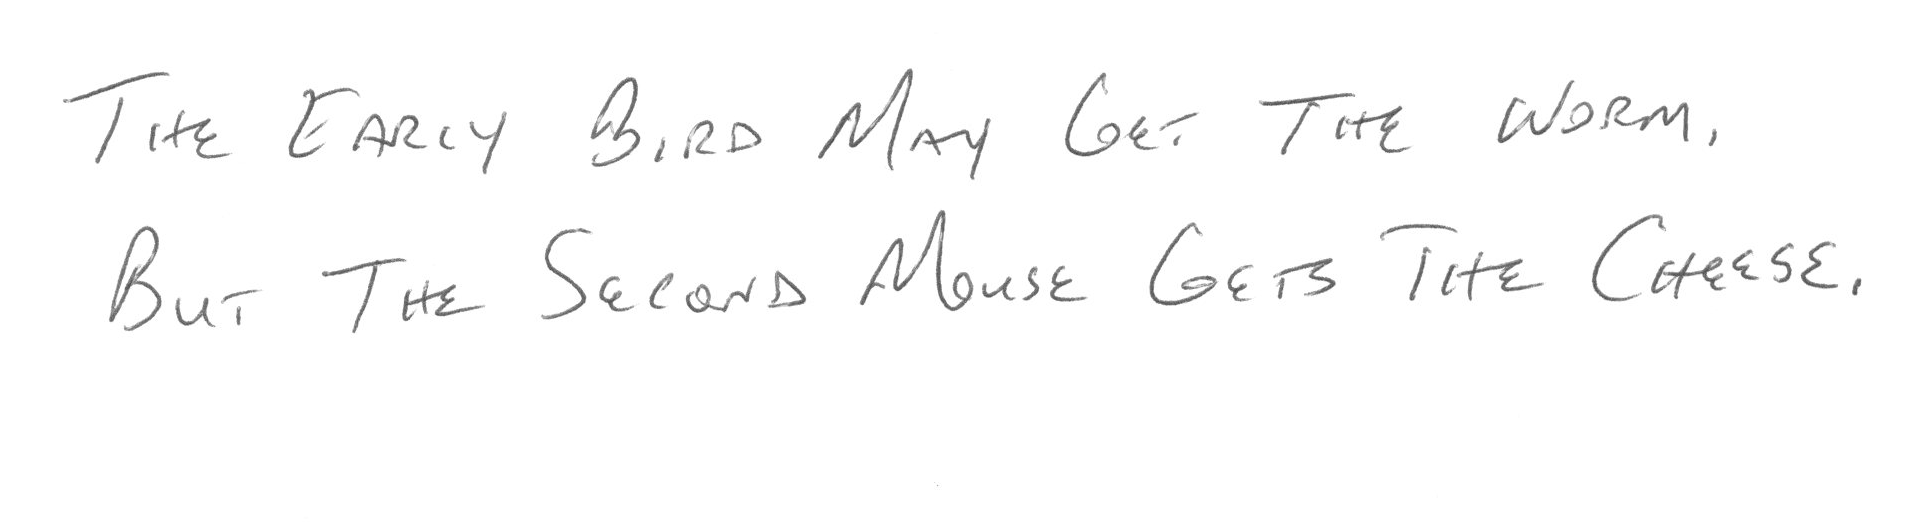 The Early Bird May Get The Worm,
But The Second Mouse Gets The Cheese.